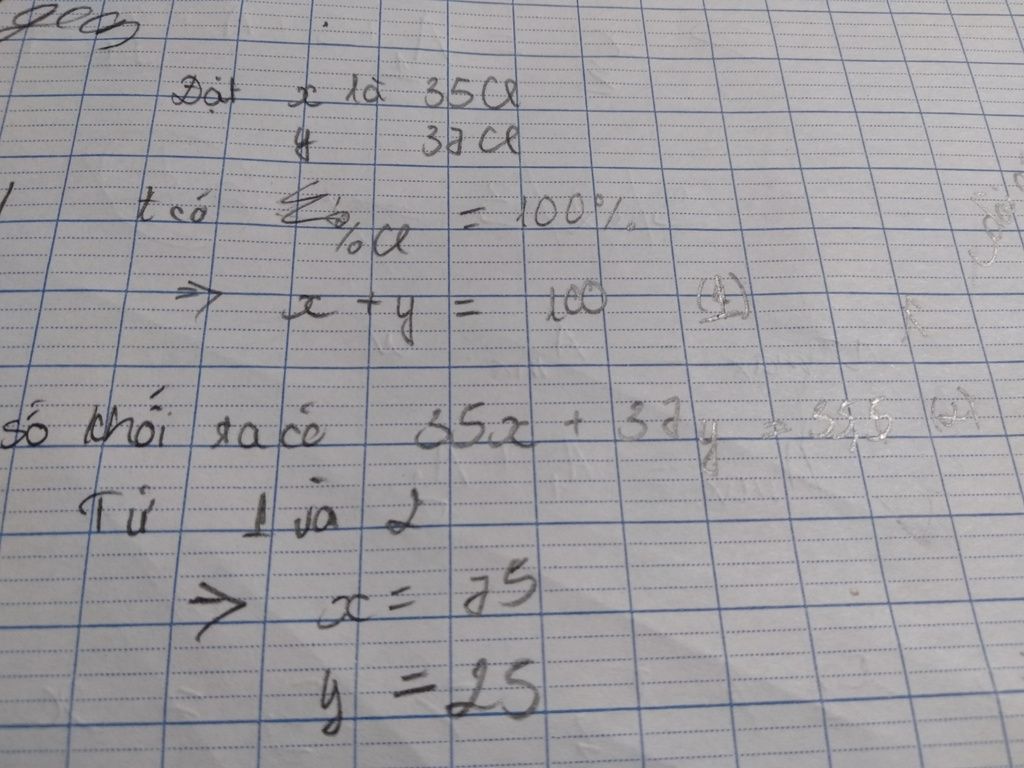 Đặt x là 35Cl
y 37Cl
t có %Cl = 100%
=> x + y = 100 (1)
số khối ta có 35x + 37y = 35,5 (2)
Từ 1 và 2
=> x = 75
y = 25